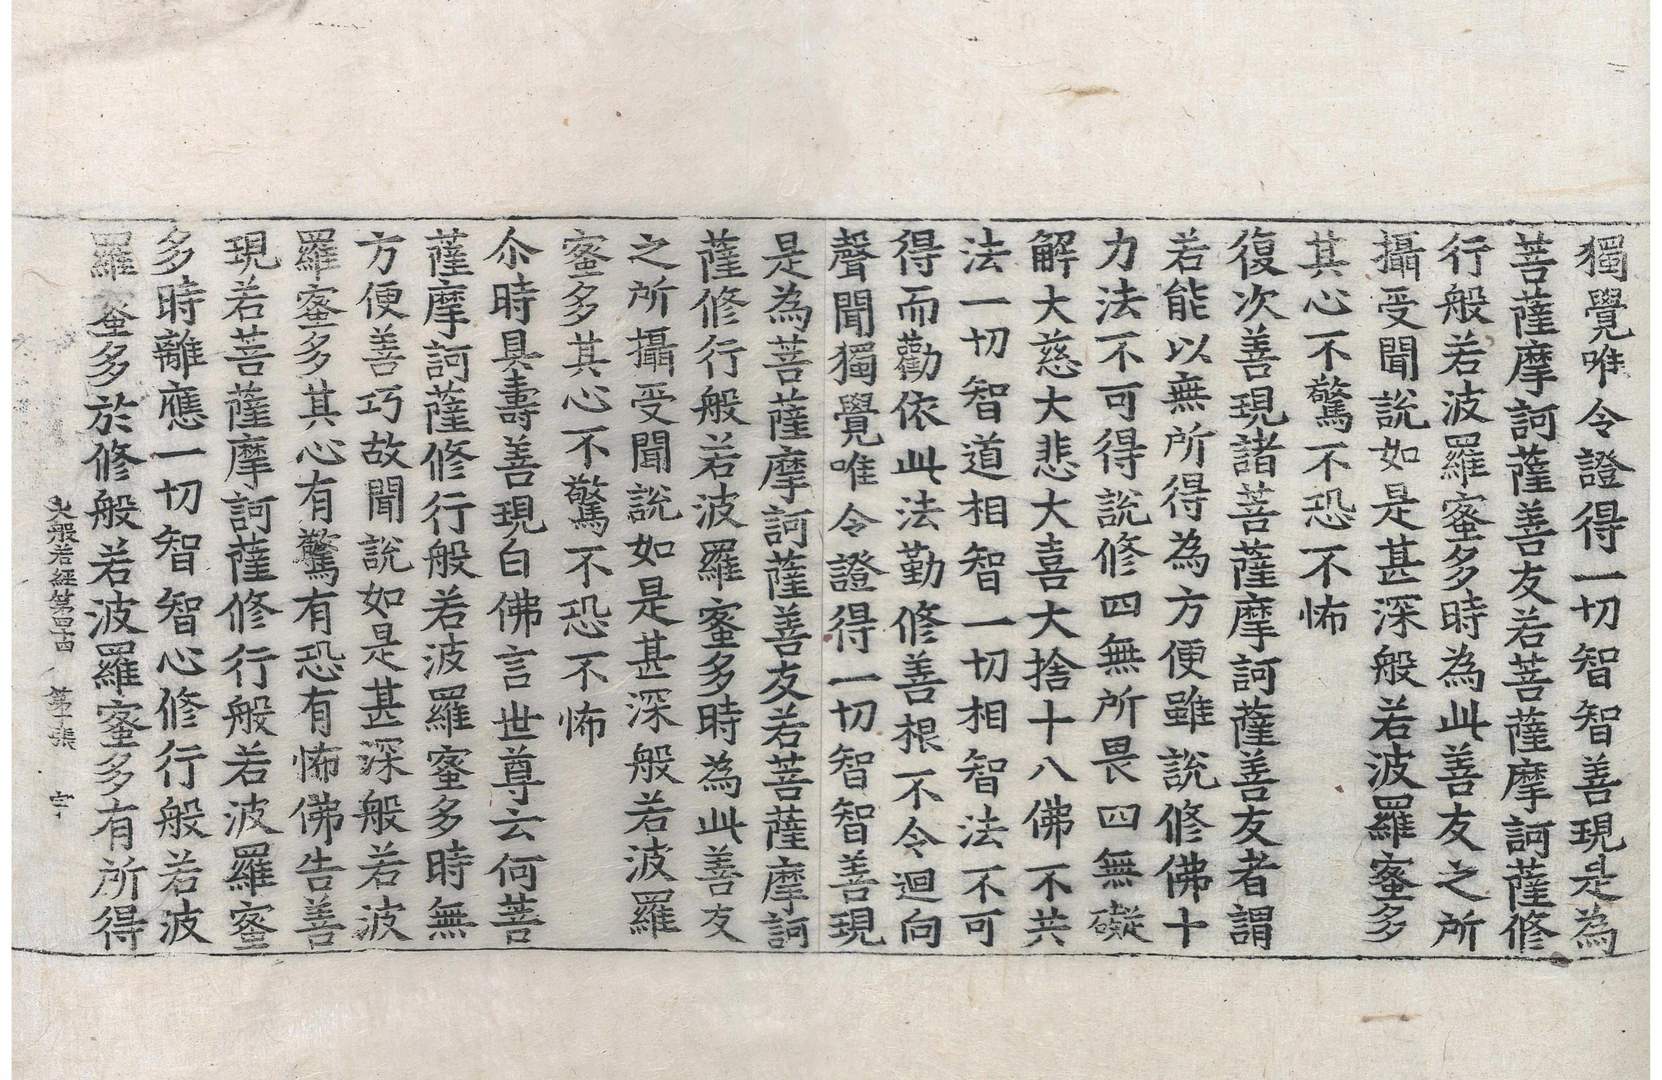 獨覺唯令證得一切智智善現是為
菩薩摩訶薩善友若菩薩摩訶薩修
行般若波羅蜜多時為此善友之所
攝受聞說如是甚深般若波羅蜜多
其心不驚不恐不怖
復次善現諸菩薩摩訶薩善友者謂
若能以無所得為方便雖說修佛十
力法不可得說修四無所畏四無礙
解大慈大悲大喜大捨十八佛不共
法一切智道相智一切相智法不可
得而勸依此法勤修善根不令迴向
聲聞獨覺唯令證得一切智智善現
是為菩薩摩訶薩善友若菩薩摩訶
薩修行般若波羅蜜多時為此善友
之所攝受聞說如是甚深般若波羅
蜜多其心不驚不恐不怖
尒時具壽善現白佛言世尊云何菩
薩摩訶薩修行般若波羅蜜多時無
方便善巧故聞說如是甚深般若波
羅蜜多其心有驚有恐有怖佛告善
現若菩薩摩訶薩修行般若波羅蜜
多時離應一切智智心修行般若波
羅蜜多於修般若波羅蜜多有所得
大般若經第 第 張 宇